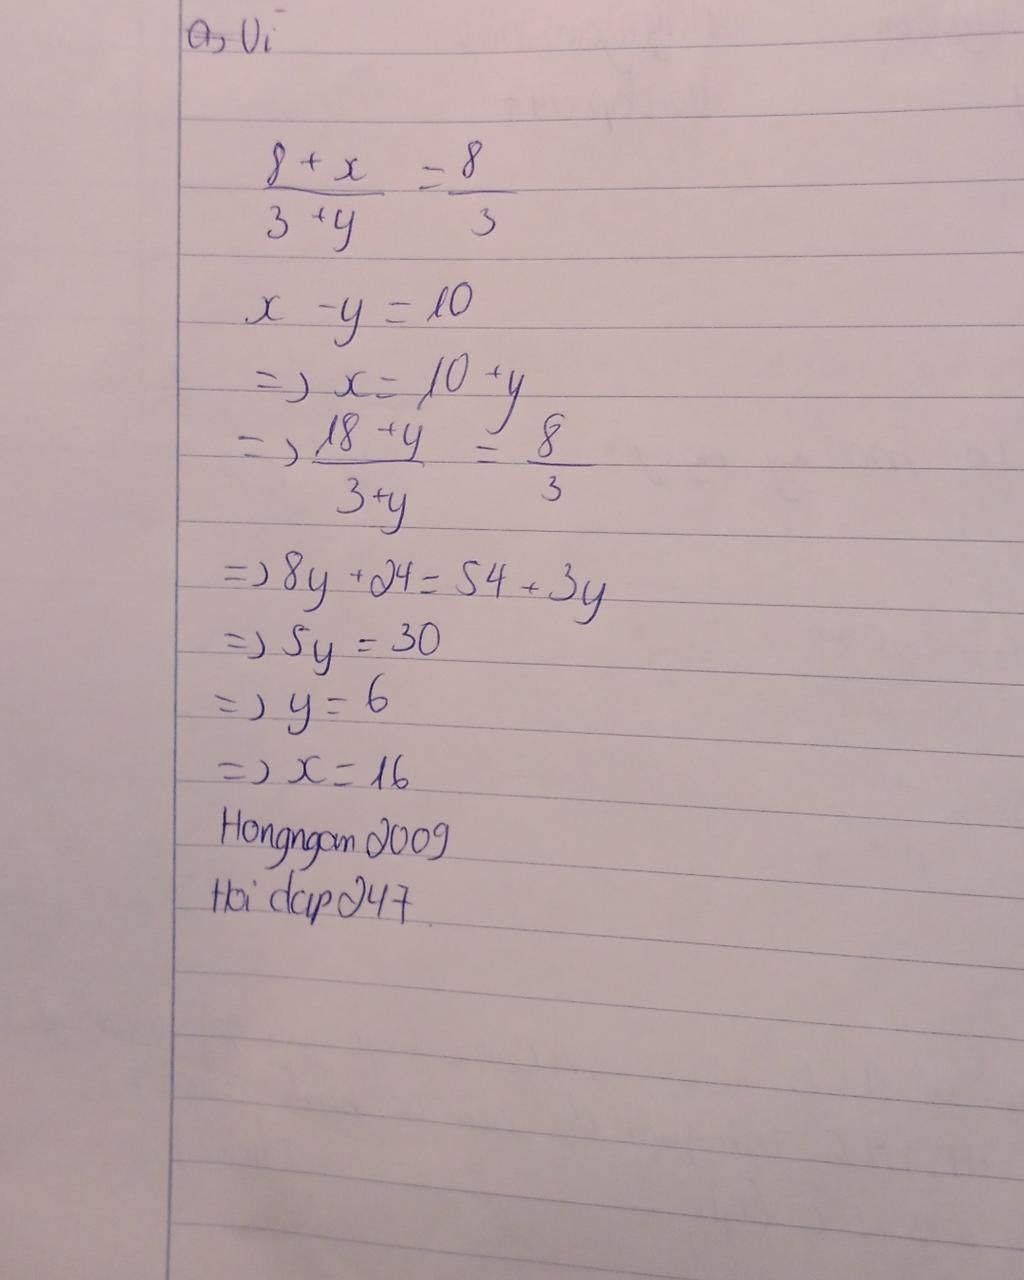 a, Vì
8 + x / 3 + y = 8 / 3
x - y = 10
=> x = 10 + y
=> 18 + y / 3 + y = 8 / 3
=> 8y + 24 = 54 + 3y
=> 5y = 30
=> y = 6
=> x = 16
Hongngan 2009
Hoi dap 247